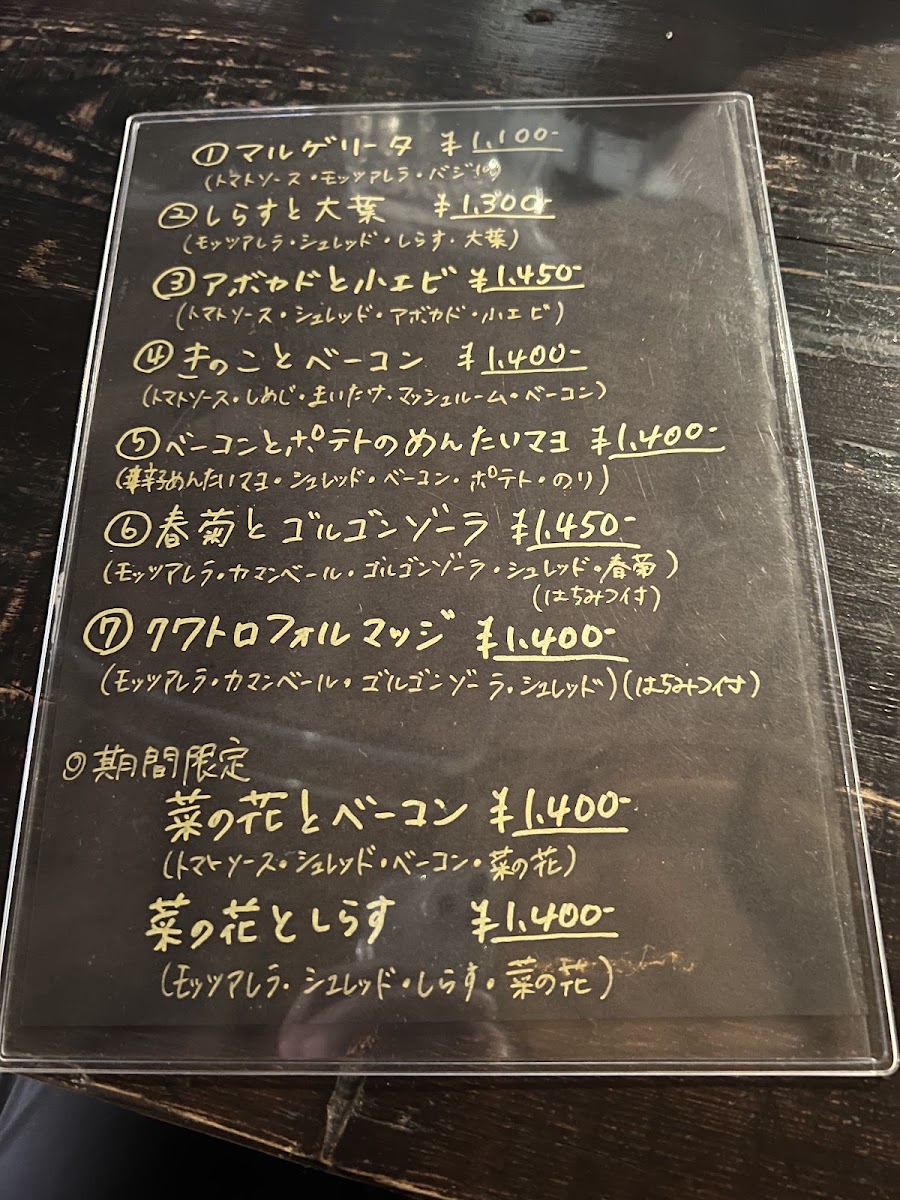 ① マルゲリータ ¥1,100-
(トマトソース・モッツアレラ・バジル)
② しらすと大葉 ¥1,300-
(モッツアレラ・シュレッド・しらす・大葉)
③ アボカドと小エビ ¥1,450-
(トマトソース・シュレッド・アボカド・小エビ)
④ きのことベーコン ¥1,400-
(トマトソース・しめじ・まいたけ・マッシュルーム・ベーコン)
⑤ ベーコンとポテトのめんたいマヨ ¥1,400-
(辛子めんたいマヨ・シュレッド・ベーコン・ポテト・のり)
⑥ 春菊とゴルゴンゾーラ ¥1,450-
(モッツアレラ・カマンベール・ゴルゴンゾーラ・シュレッド・春菊)
(はちみつ付)
⑦ クワトロフォルマッジ ¥1,400-
(モッツアレラ・カマンベール・ゴルゴンゾーラ・シュレッド)(はちみつ付)
◎期間限定
菜の花とベーコン ¥1,400-
(トマトソース・シュレッド・ベーコン・菜の花)
菜の花としらす ¥1,400-
(モッツアレラ・シュレッド・しらす・菜の花)